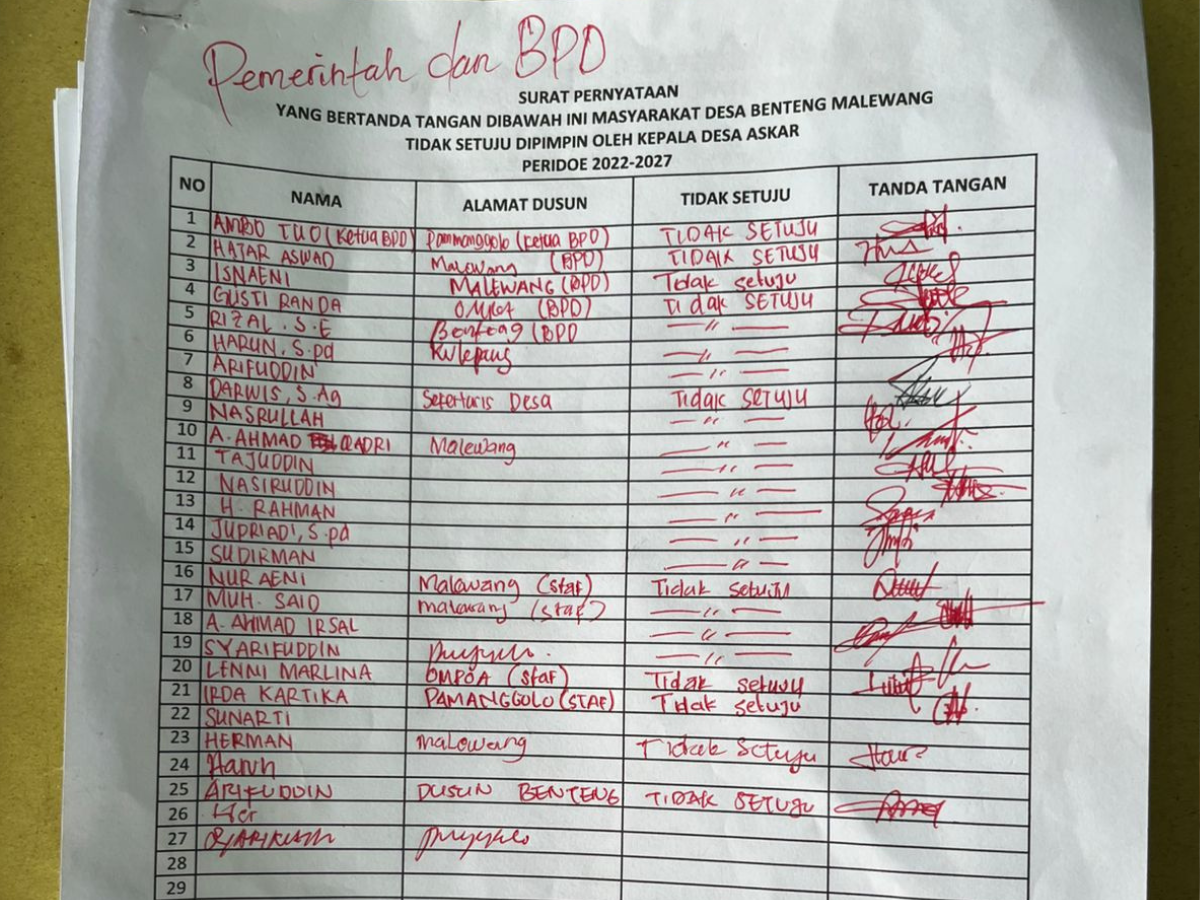 Pemerintah dan BPD
SURAT PERNYATAAN
YANG BERTANDA TANGAN DIBAWAH INI MASYARAKAT DESA BENTENG MALEWANG
TIDAK SETUJU DIPIMPIN OLEH KEPALA DESA ASKAR
PERIDOE 2022-2027
NO NAMA ALAMAT DUSUN TIDAK SETUJU TANDA TANGAN
1 AMBO TUO (Ketua BPD) Pammanggolo (Ketua BPD) TIDAK SETUJU
2 HATAR ASWAD Malewang (BPD) TIDAK SETUJU
3 ISNAENI MALEWANG (BPD) Tidak setuju
4 GUSTI RANDA (BPD) Tidak SETUJU
5 RIZAL. S.E Benteng (BPD — " —
6 HARUN, S.pd Kulepang — " —
7 ARIFUDDIN — " —
8 DARWIS, S.Ag Sekertaris Desa Tidak SETUJU
9 NASRULLAH — " —
10 A. AHMAD QADRI Malewang — " —
11 TAJUDDIN — " —
12 NASIRUDDIN — " —
13 H. RAHMAN — " —
14 JUPRIADI, S.pd — " —
15 SUDIRMAN — " —
16 NUR AENI Malewang (staf) Tidak setuju
17 MUH. SAID malewang (staf) — " —
18 A. AHMAD IRSAL — " —
19 SYARIFUDDIN — " —
20 LENNI MARLINA OMPOA (staf) Tidak setuju
21 IRDA KARTIKA PAMANGGOLO (STAF) Tidak setuju
22 SUNARTI
23 HERMAN Malewang Tidak Setuju
24 Harun
25 ARIFUDDIN DUSUN BENTENG TIDAK SETUJU
26 Her
27
28
29